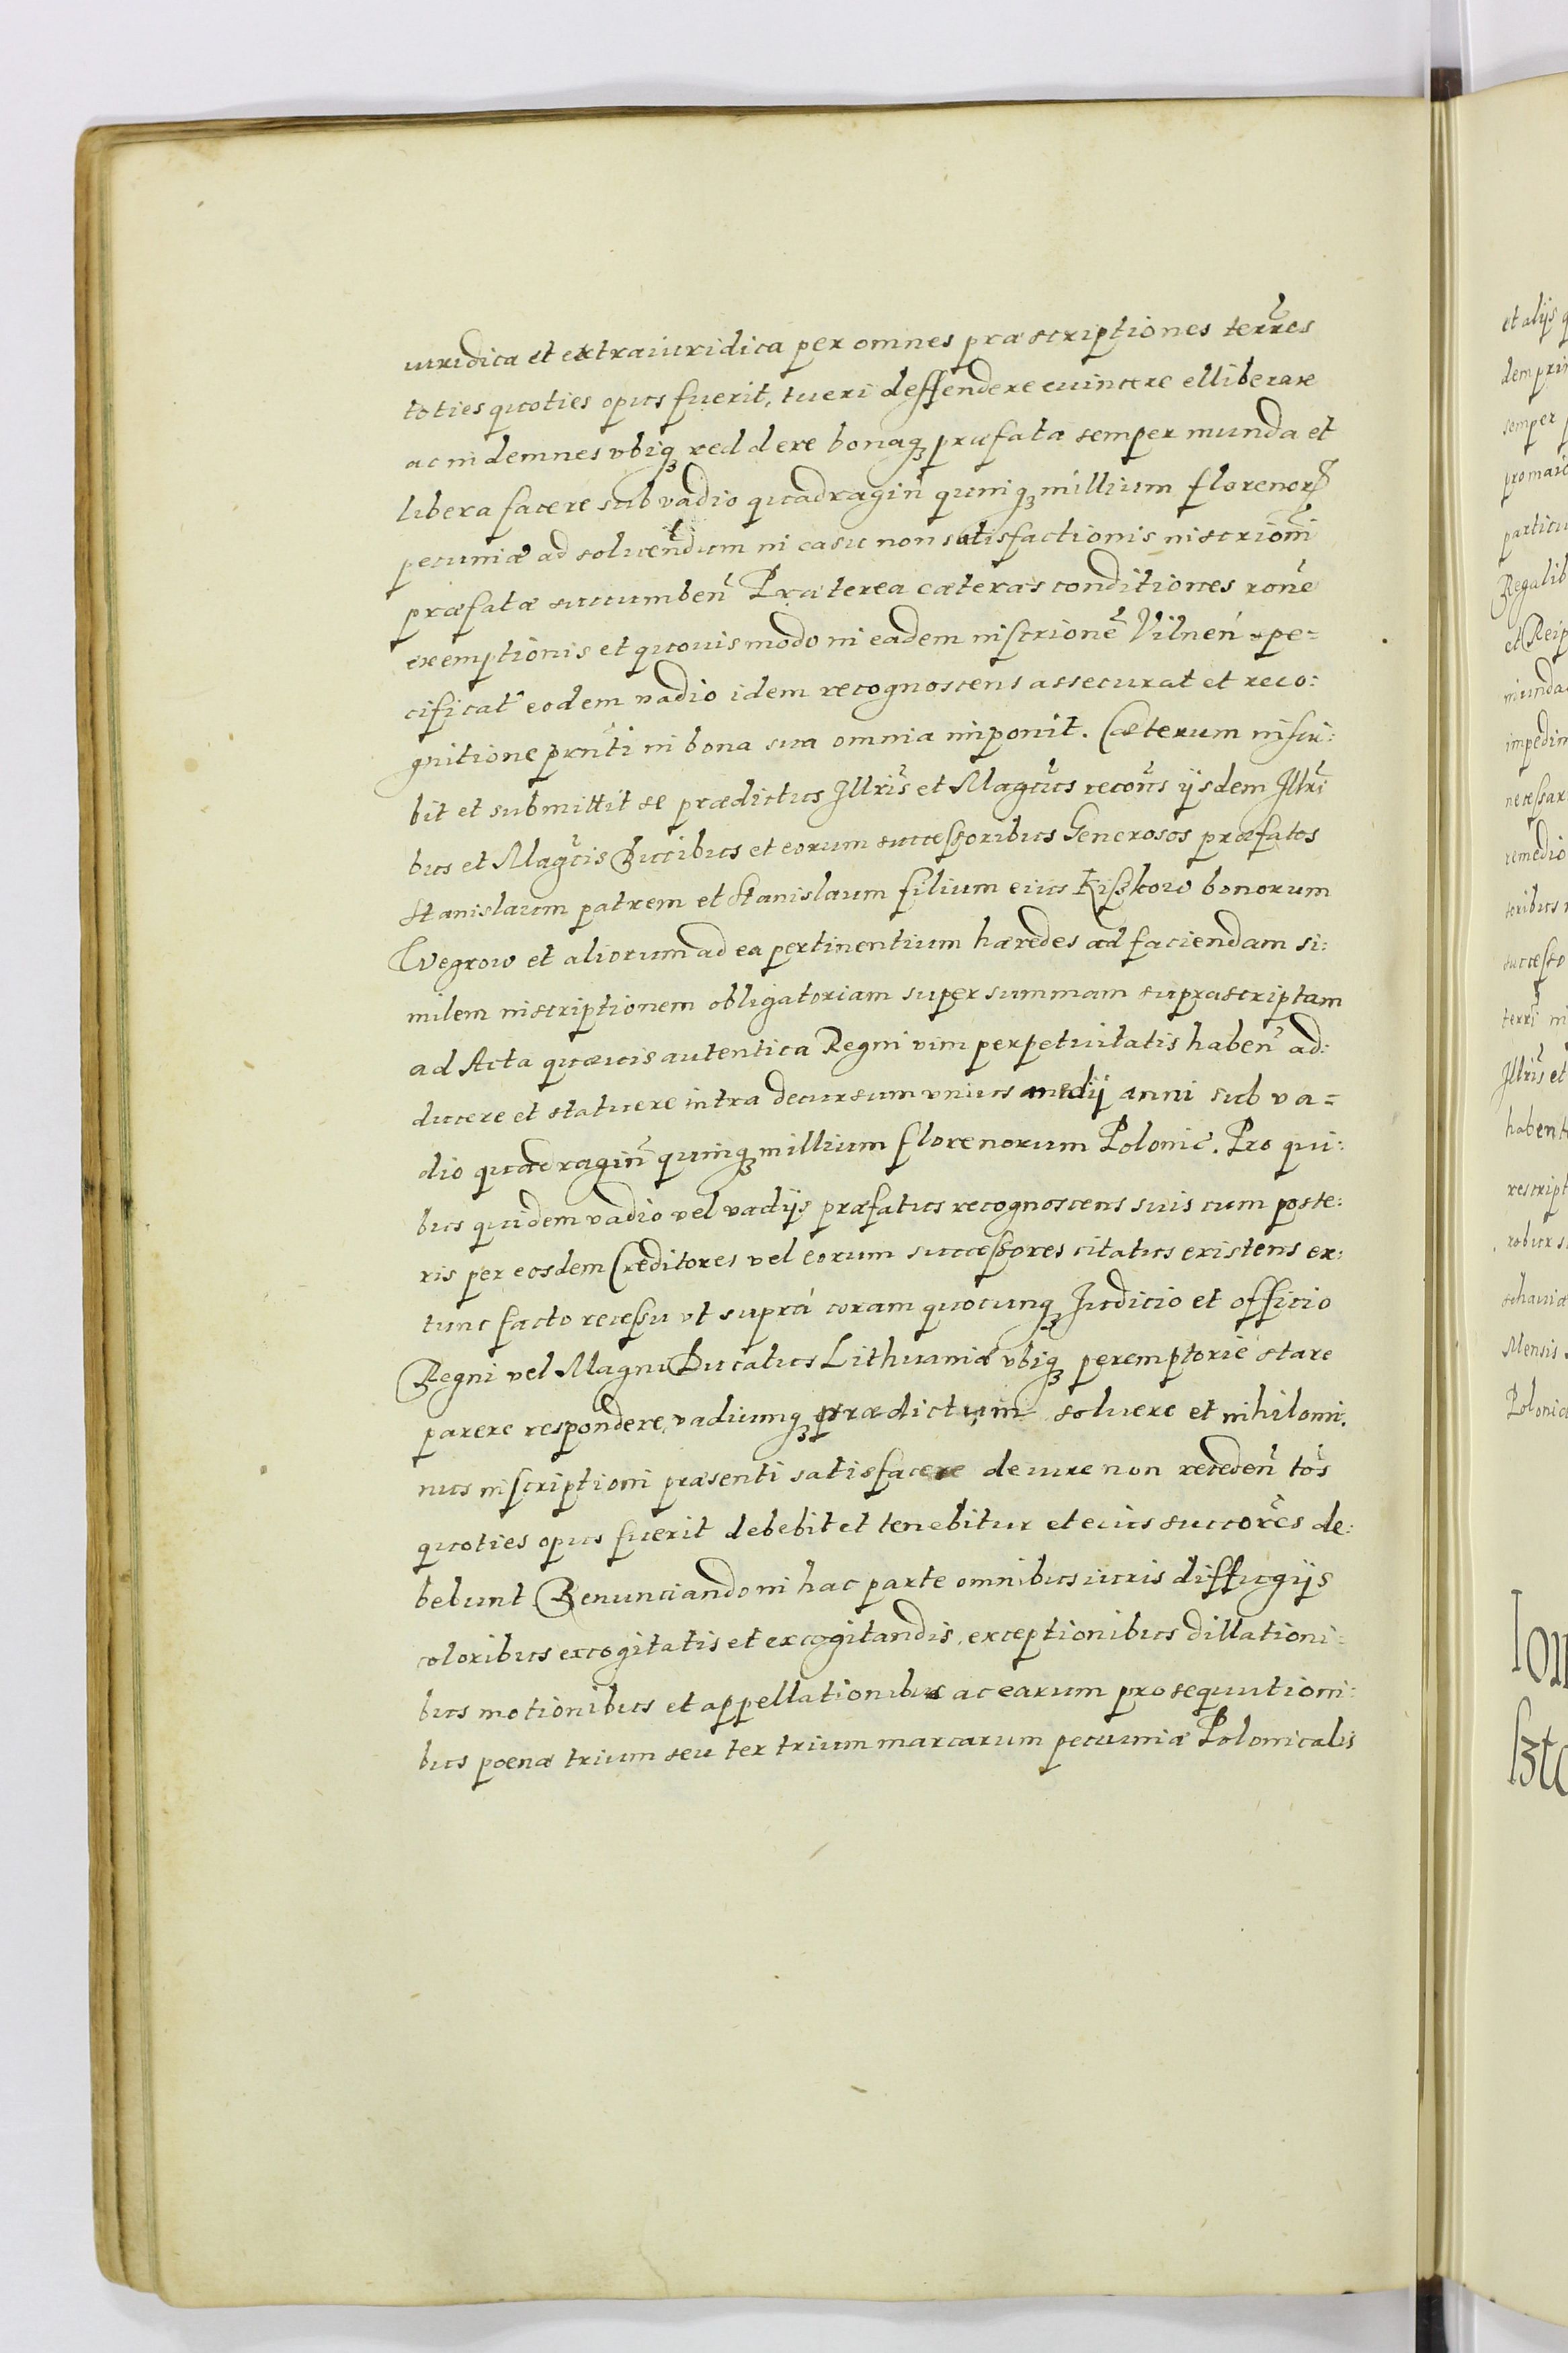 iuridica et extraiuridica per omnes præscriptiones terrẽs
toties quoties opus fuerit, tueri deffendere euincere elliberare
ac indemnes vbiqꝫ reddere bonaqꝫ præfata semper munda et
libera facere sub vadio quadragiñ quinqꝫ millium florenorꝝ
pecuniæ ad soluendum in casu non satisfactionis inscrioñi
præfatæ succumbeñ Præterea cæteras conditiones roñe
exemptionis et quouismodo in eadem inscrioñe Vilneñ spe=
cificat̃ eodem vadio idem recognoscens assecurat et reco:
gnitione prñti in bona sua omnia imponit. Cæterum inscri:
bit et submittit se prædictus Illris̃ et Magcũs recoñs ijsdem Illri
bus et Magcĩs Ducibus et eorum successoribus Generosos præfatos
Stanislaum patrem et Stanislaum filium eius Kißkow bonorum
Wegrow et aliorum ad ea pertinentium hæredes ad faciendam si:
milem inscriptionem obligatoriam super summam suprascriptam
ad Acta quæuis autentica Regni vim perpetuitatis habeñ ad:
ducere et statuere intra decursum vnius medij anni sub va=
dio quadragiñ quinqꝫ millium florenorum Polonic̃. Pro qui:
bus quidem vadio vel vadijs præfatus recognoscens suis cum poste:
ris per eosdem Creditores vel eorum successores citatus existens ex:
tunc facto recessu vt suprá coram quocunqꝫ Iudicio et officio
Regni vel Magni Ducatus Lithuaniæ vbiqꝫ peremptorié stare
parere respondere, vadiumqꝫ prædictum soluere et nihilomi:
nus inscriptioni præsenti satisfacere de iure non recedeñ tõs
quoties opus fuerit debebit et tenebitur et eius succorẽs de:
bebunt. Renunciando in hac parte omnibus iuris diffugijs
coloribus excogitatis et excogitandis, exceptionibus dillationi=
bus motionibus et appellationibus ac earum prosequutioni:
bus poenæ trium seu ter trium marcarum pecuniæ Polonicalis